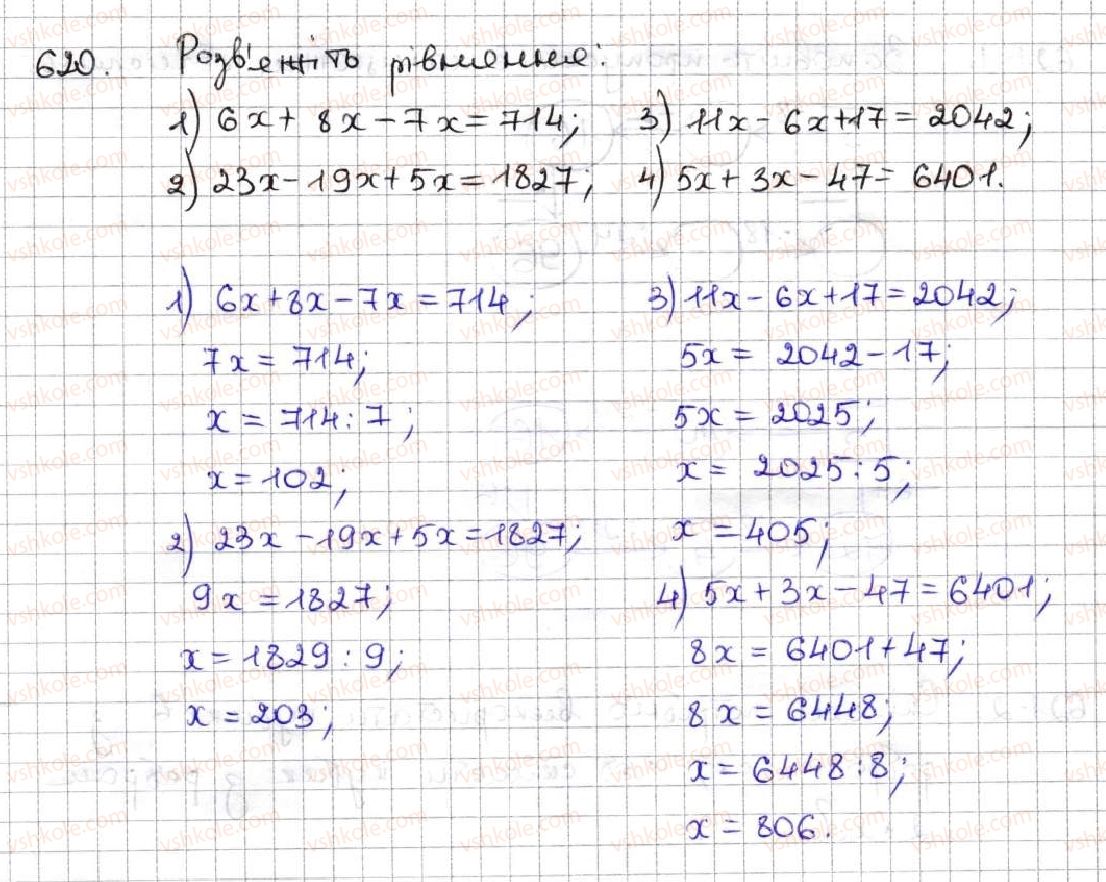 620. Розв'яжіть рівняння:
1) 6x + 8x - 7x = 714; 3) 11x - 6x + 17 = 2042;
2) 23x - 19x + 5x = 1827; 4) 5x + 3x - 47 = 6401.
1) 6x + 8x - 7x = 714;
7x = 714;
x = 714 : 7;
x = 102;
2) 23x - 19x + 5x = 1827;
9x = 1827;
x = 1829 : 9;
x = 203;
3) 11x - 6x + 17 = 2042;
5x = 2042 - 17;
5x = 2025;
x = 2025 : 5;
x = 405;
4) 5x + 3x - 47 = 6401;
8x = 6401 + 47;
8x = 6448;
x = 6448 : 8;
x = 806.